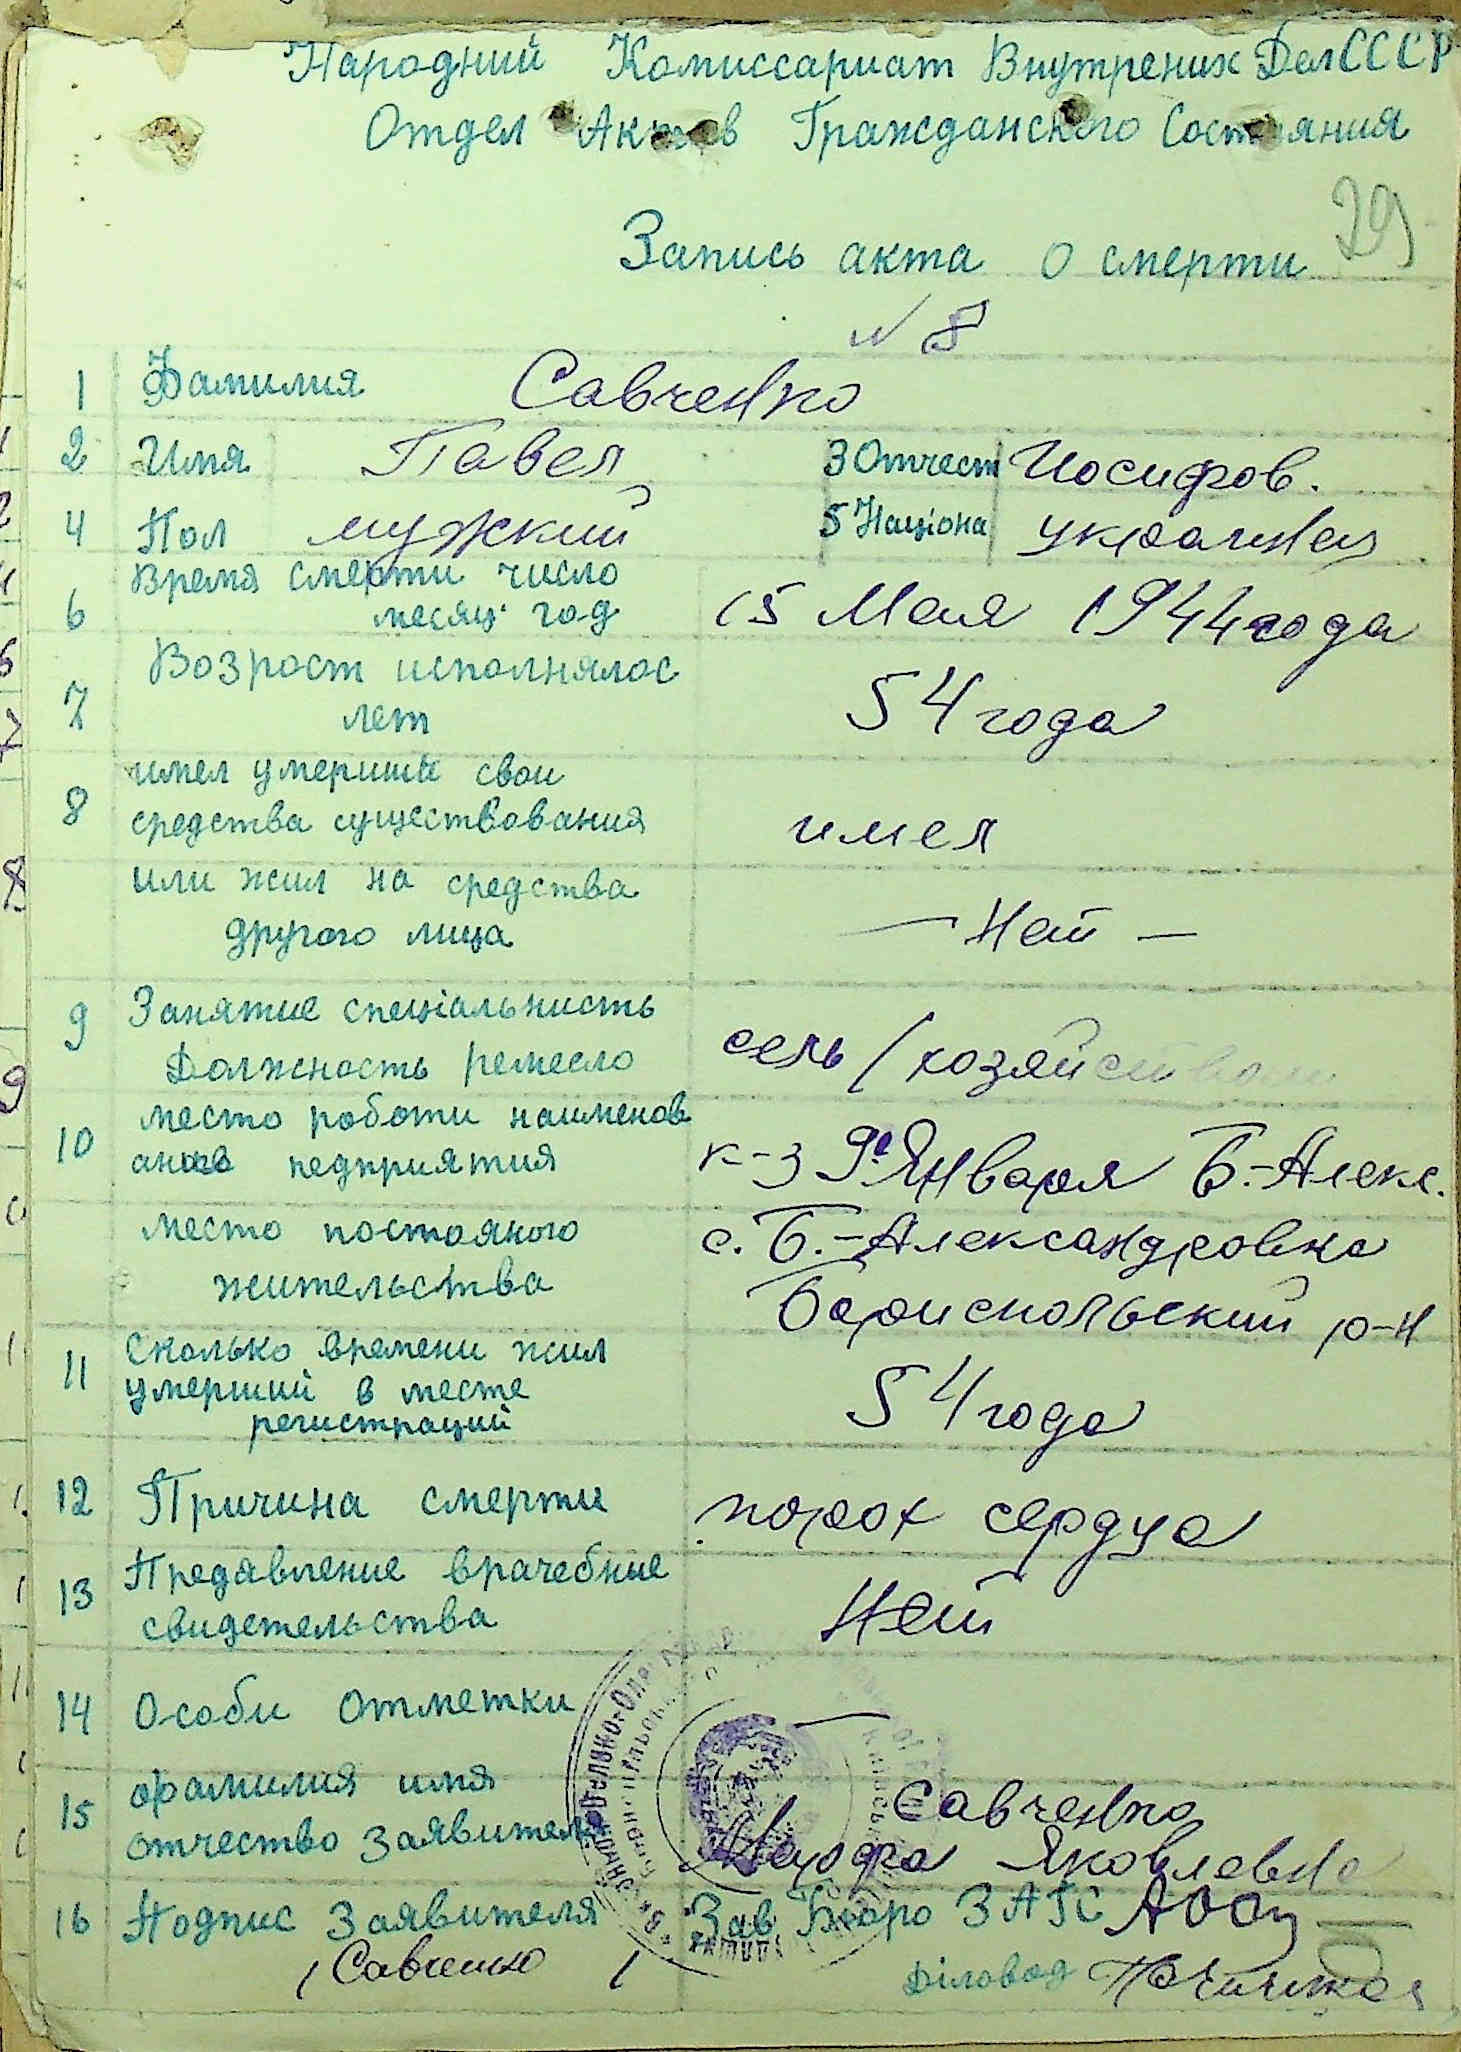 Народний Комиссариат Внутрених Дел СССР
Отдел Актов Гражданского Состояния
29
Запись акта о смерти
N 8
1 Фамилия Савченко
2 Имя Павел 3 Отчест Иосифов.
4 Пол мужский 5 Націона украинец
6 Время смерти число
месяц год 15 Мая 1944 года
Возрост исполнялос
7 лет 54 года
имел умерший свои
8 средства существования имел
или жил на средства
другого лица — Нет —
9 Занятие специальнисть
Должность ремесло сель/хозяйством
место роботи наименов
10 педприятия к-з 9е Января Б.-Алекс.
место постояного с. Б.-Александровка
жительства Бориспольский р-н
Сколько времени жил
11 умерший в месте 54 года
регистраций
12 Причина смерти порок сердца
13 Предявление врачебние
свидетельства Нет
14 Особи отметки —
15 фамилия имя Савченко
отчество заявителя Яковлевна
16 Подпис Заявителя Зав Бюро ЗАГС
/Савченко/ Діловод